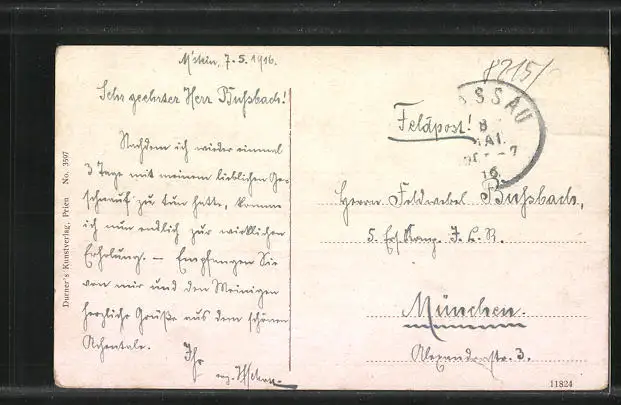 M'stein, 7.5.1916.
Sehr geehrter Herr Buhsbach!
Nachdem ich wieder einmal
3 Tage mit meinem lieblichen Ge-
zu tun hatte, komme
ich nun endlich zur wirklichen
Erholung. — Empfangen Sie
von mir und den Meinigen
herzliche Grüße aus dem schönen
Achentale.
Ihr
Durner's Kunstverlag, Prien No. 3597
8215/
SSAU
8
MAI
16
Feldpost!
Herrn Feldwebel Buhsbach,
5. Ers. Komp. I. L. R.
München.
Alexandrastr. 3.
11824